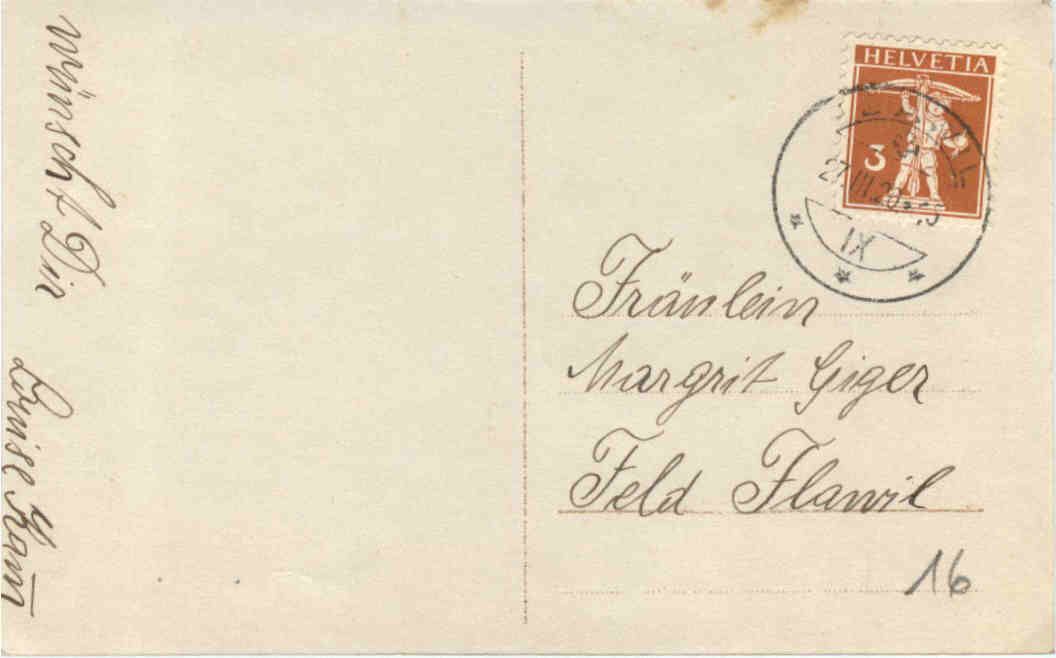 wünscht Dir
Luise Kam̅
HELVETIA
3
27.III.20
IX
Fräulein
Margrit Giger
Feld Flawil
16